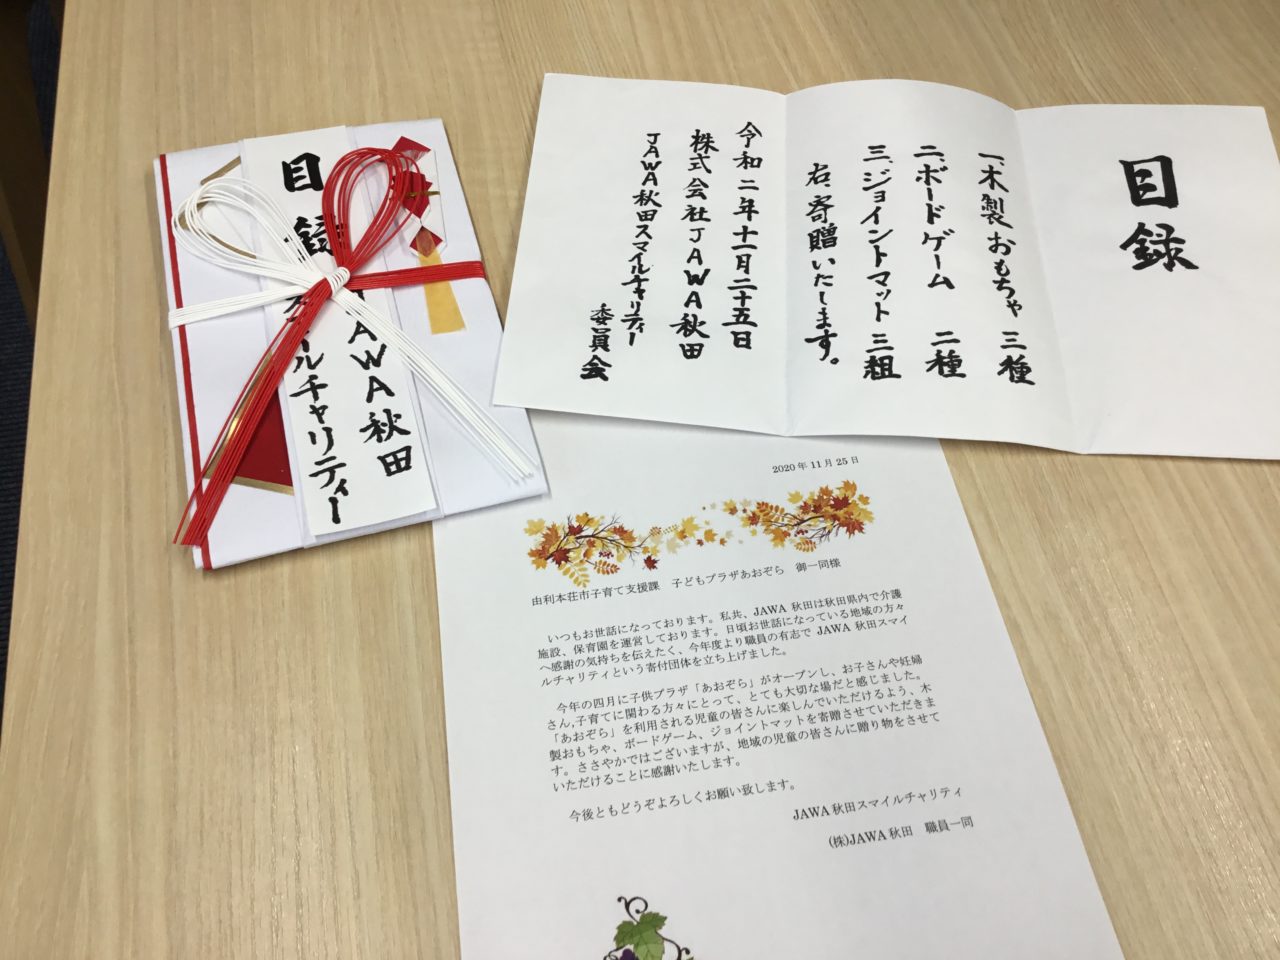 目録
JAWA秋田
スマイルチャリティー
目録
一、木製おもちゃ 三種
二、ボードゲーム 二種
三、ジョイントマット 三組
右、寄贈いたします。
令和二年十一月二十五日
株式会社JAWA秋田
JAWA秋田スマイルチャリティー
委員会
2020年11月25日
由利本荘市子育て支援課 子どもプラザあおぞら 御一同様
いつもお世話になっております。私共、JAWA 秋田は秋田県内で介護
施設、保育園を運営しております。日頃お世話になっている地域の方々
へ感謝の気持ちを伝えたく、今年度より職員の有志で JAWA 秋田スマイ
ルチャリティという寄付団体を立ち上げました。
今年の四月に子供プラザ「あおぞら」がオープンし、お子さんや妊婦
さん,子育てに関わる方々にとって、とても大切な場だと感じました。
「あおぞら」を利用される児童の皆さんに楽しんでいただけるよう、木
製おもちゃ、ボードゲーム、ジョイントマットを寄贈させていただきま
す。ささやかではございますが、地域の児童の皆さんに贈り物をさせて
いただけることに感謝いたします。
今後ともどうぞよろしくお願い致します。
JAWA 秋田スマイルチャリティ
(株)JAWA 秋田 職員一同